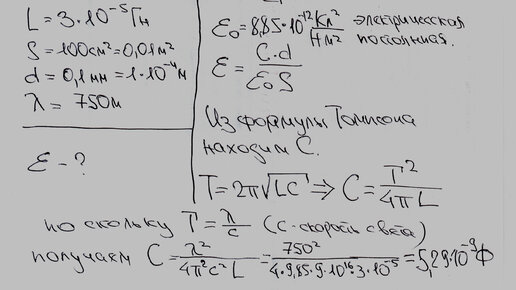 L = 3·10⁻⁵ Гн
S = 100см² = 0,01м²
d = 0,1мм = 1·10⁻⁴м
λ = 750м
ε - ?
ε₀ = 8,85·10⁻¹² Кл²/Нм² электрическая постоянная.
ε = C·d/ε₀S
Из формулы Томпсона
находим C.
T = 2π√LC ⇒ C = T²/4πL
по скольку T = λ/c (c - скорость света)
получаем C = λ²/4π²c²L = 750²/4·9,85·9·10¹⁶·3·10⁻⁵ = 5,29·10⁻⁹Ф